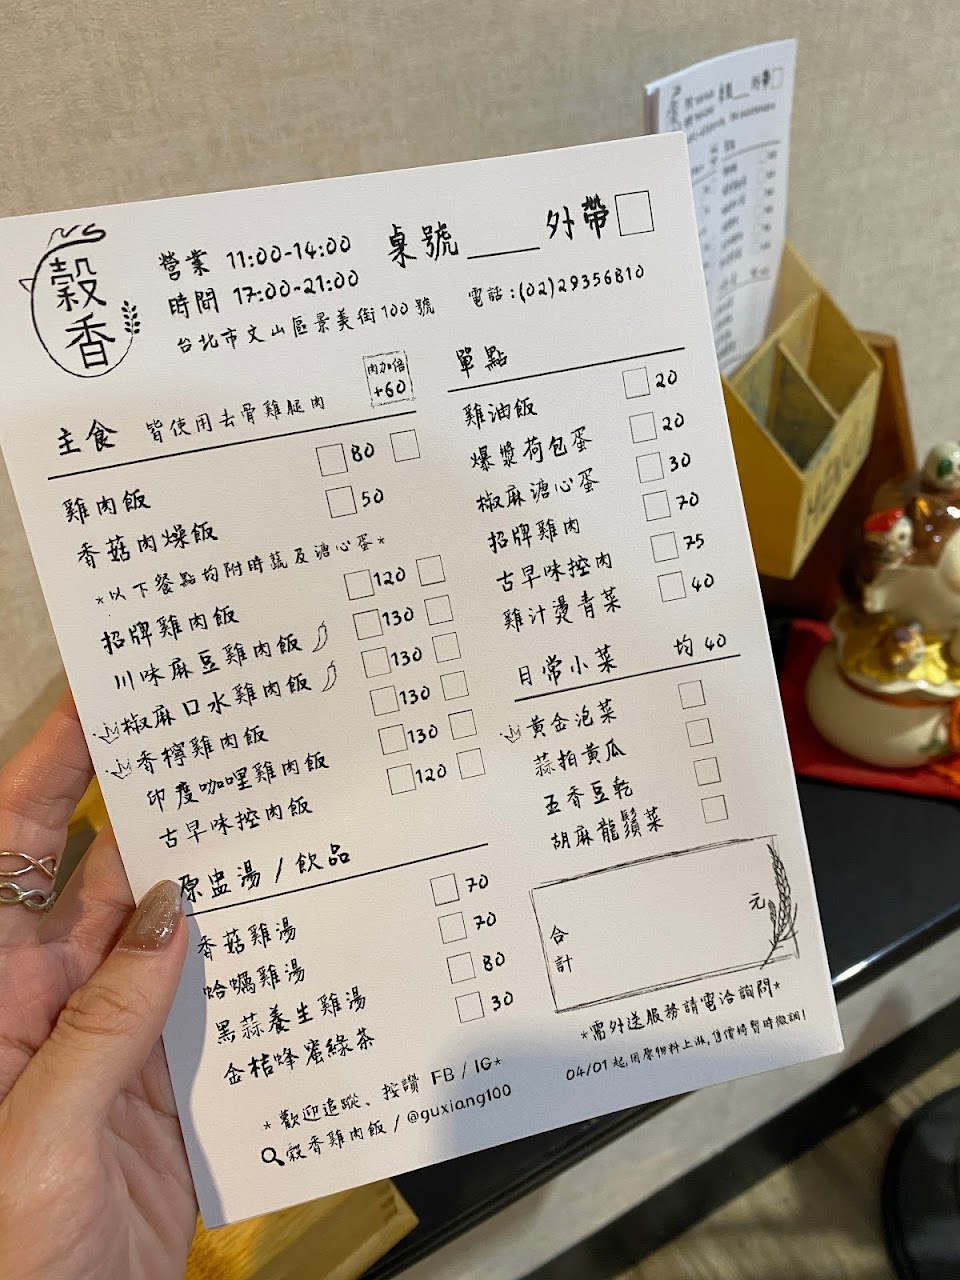 穀香
營業 11:00-14:00
時間 17:00-21:00
台北市文山區景美街100號
桌號____外帶□
電話:(02)29356810
主食 皆使用去骨雞腿肉
肉加倍
+60
雞肉飯 □80 □
香菇肉燥飯 □50
*以下餐點均附時蔬及溏心蛋*
招牌雞肉飯 □120 □
川味麻豆雞肉飯 □130 □
椒麻口水雞肉飯 □130 □
香檸雞肉飯 □130 □
印度咖哩雞肉飯 □130 □
古早味控肉飯 □120 □
原盅湯/飲品
香菇雞湯 □70
蛤蠣雞湯 □70
黑蒜養生雞湯 □80
金桔蜂蜜綠茶 □30
*歡迎追蹤、按讚 FB/IG*
穀香雞肉飯/@guxiang100
單點
雞油飯 □20
爆漿荷包蛋 □20
椒麻溏心蛋 □30
招牌雞肉 □70
古早味控肉 □75
雞汁燙青菜 □40
日常小菜 均40
黃金泡菜 □
蒜拍黃瓜 □
五香豆乾 □
胡麻龍鬚菜 □
合計 元
*需外送服務請電洽詢問*
04/01起,因原物料上漲,售價將暫時微調!
MENU